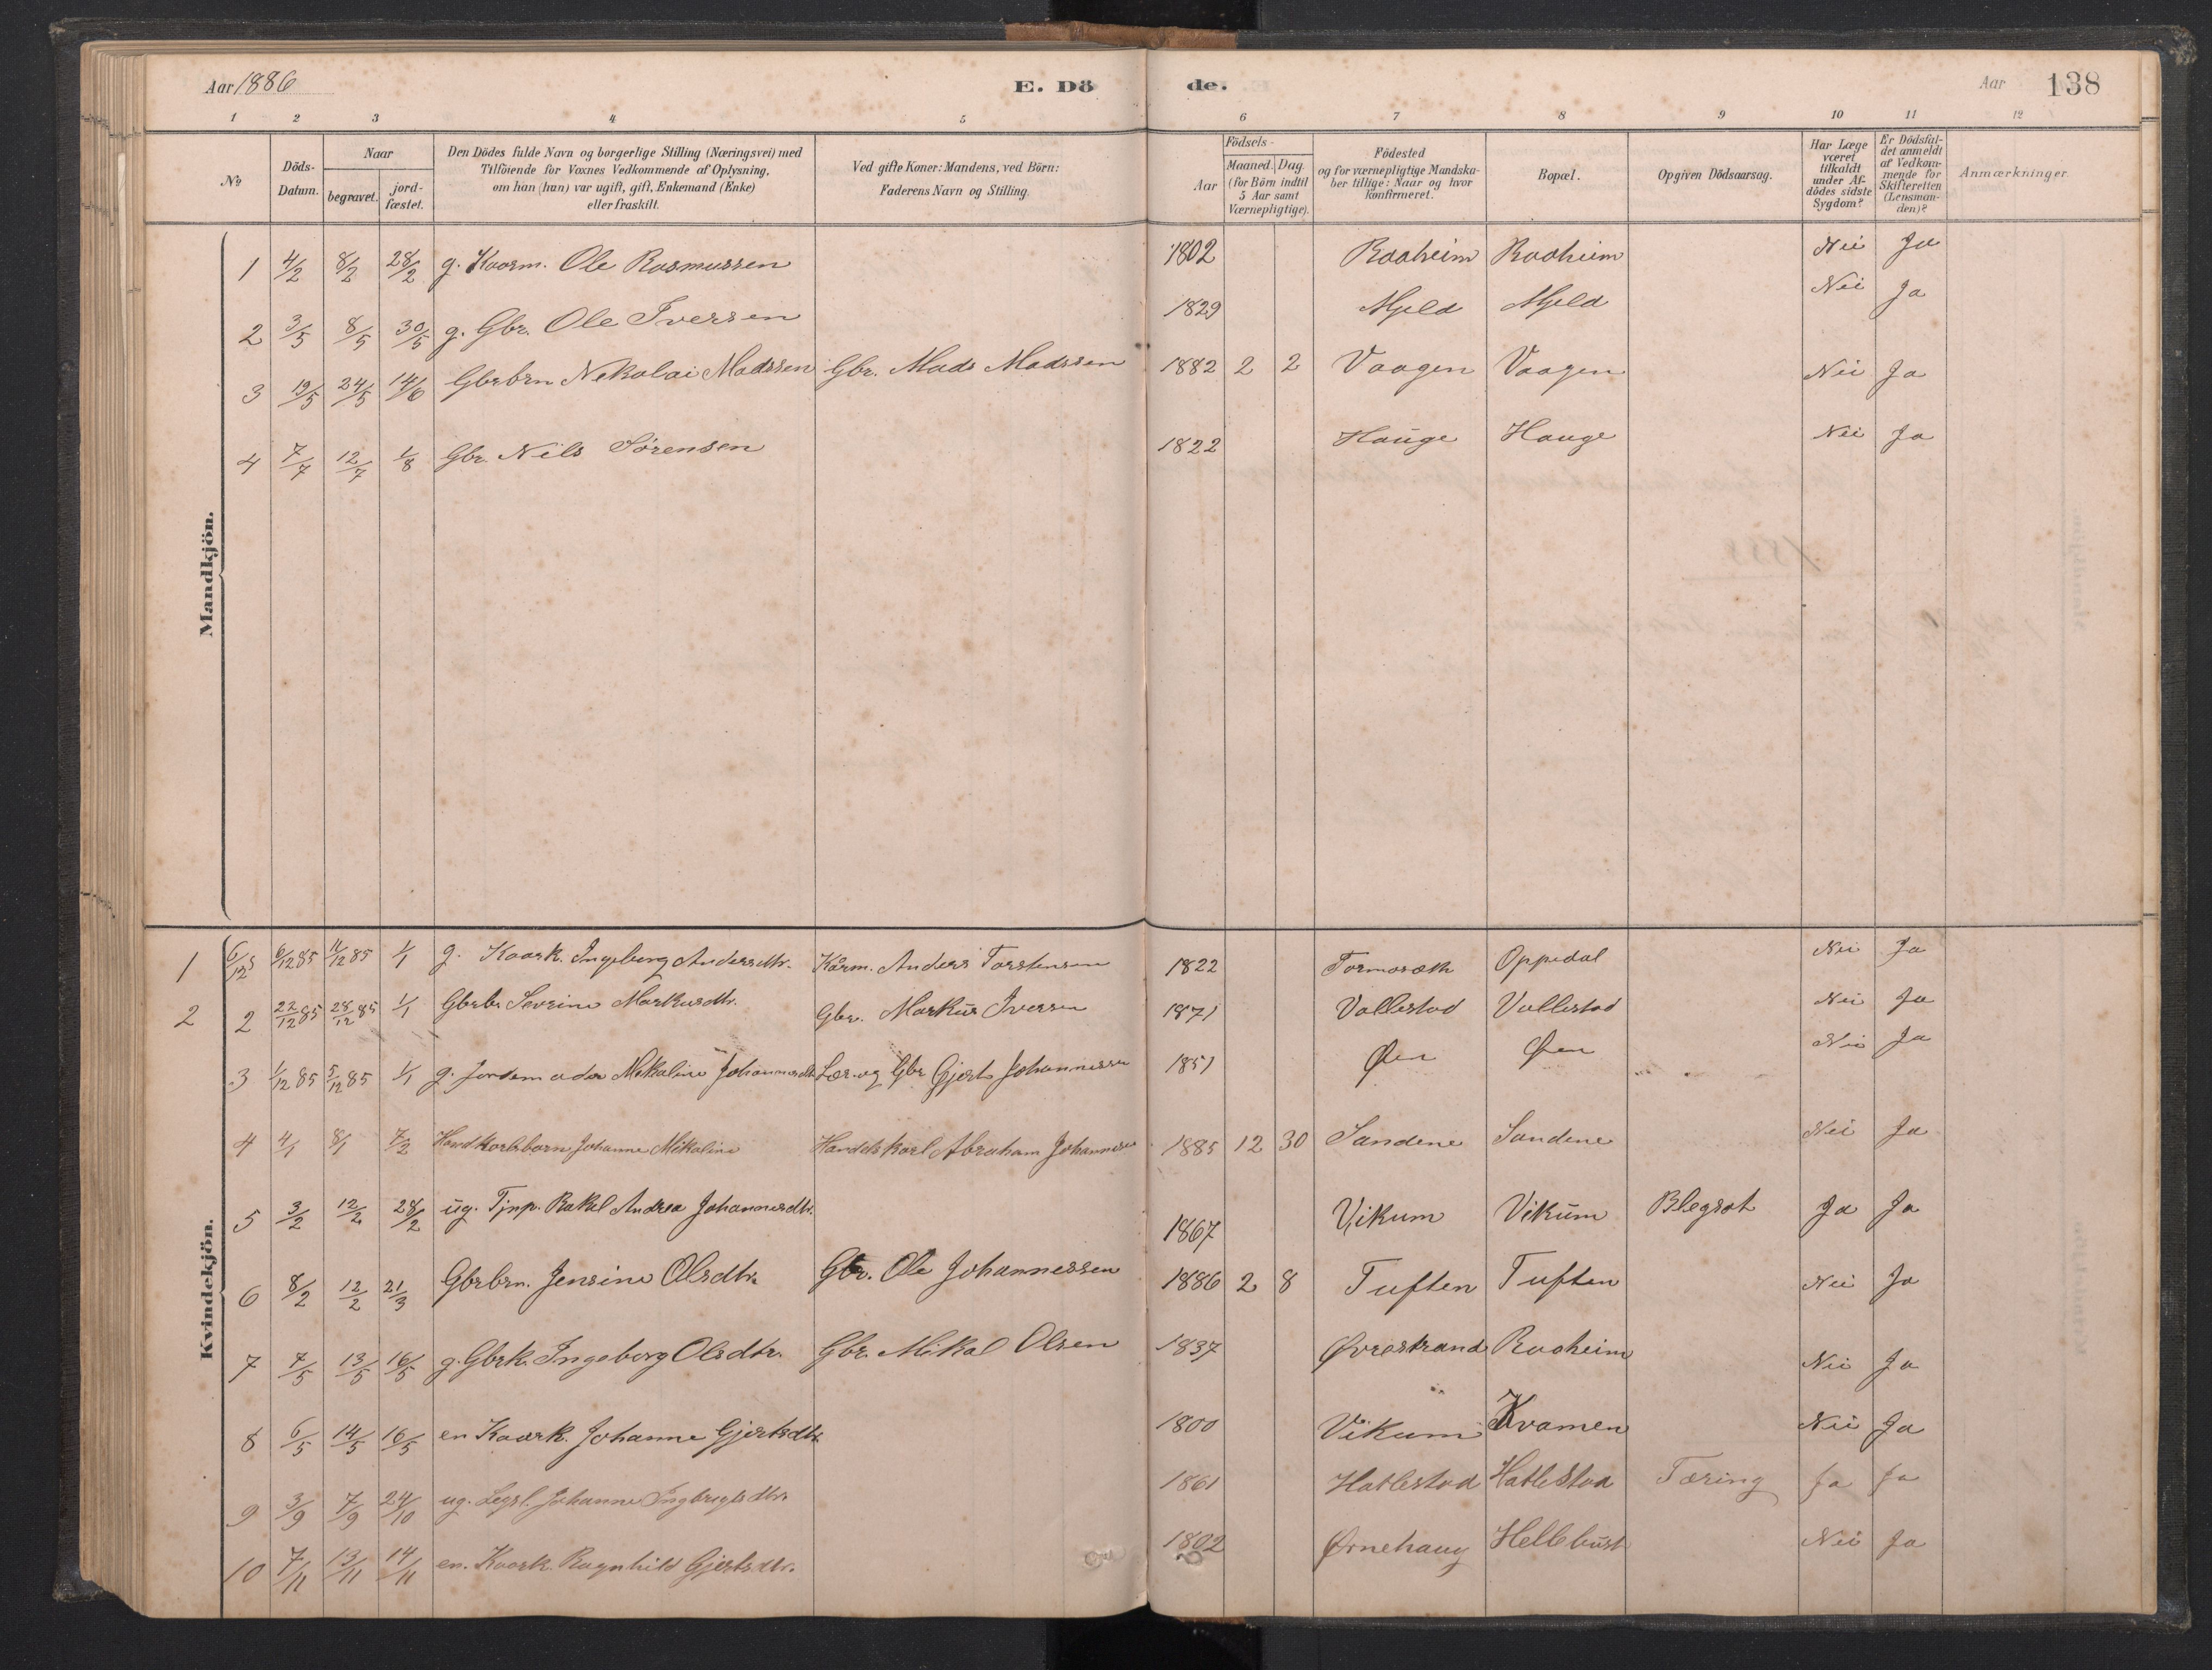 Aar 1886 E. Dö de. Aar 138
1 2 3 4 5 6 7 8 9 10 11 12
No Döds-Datum. Naar begravet. jord-fæstet. Den Dödes fulde Navn og borgerlige Stilling (Næringsvei) med Tilföiende for Voxnes Vedkommende af Oplysning, om han (hun) var ugift, gift, Enkemand (Enke) eller fraskilt. Ved gifte Koner: Mandens, ved Börn: Faderens Navn og Stilling. Födsels- Aar Maaned. Dag. (for Börn indtil 5 Aar samt Værnepligtige). Födested og for værnepligtige Mandska-ber tillige: Naar og hvor konfirmeret. Bopæl. Opgiven Dödsaarsag. Har Læge været tilkaldt under Af-dödes sidste Sygdom? Er Dödsfal-det anmeldt af Vedkom-mende for Skifteretten (Lensman-den)? Anmærkninger.
Mandkjön.
1 4/2 8/2 28/2 g. Kaarm. Ole Rasmussen 1802 Raaheim Raaheim Nei Ja
2 3/5 8/5 30/5 g. Gbr. Ole Iversen 1829 Mjeld Mjeld Nei Ja
3 19/5 24/5 14/6 Gbrbrn Nikolai Madssen Gbr. Mads Madssen 1882 2 2 Vaagen Vaagen Nei Ja
4 7/7 12/7 1/8 Gbr. Nils Sørensen 1822 Hauge Hauge Nei Ja
Kvindekjön.
1 6/12 85 11/12 85 1/1 g. Kaark. Ingeborg Andersdtr. Kårm. Anders Torstensen 1822 Oppedal Nei Ja
2 2 22/12 85 28/12 85 1/1 Gbrbr Severine Markusdtr. Gbr. Markus Iversen 1871 Vallestad Vallestad Nei Ja
3 1/12 85 5/12 85 1/1 g. Jordemoder Mikaline Johannesdtr. Lær. og Gbr Gjert Johannessen 1851 Øen Øen Nei Ja
4 4/1 8/1 7/2 Handkarlsbarn Johanne Mikaline Handelskarl Abraham Johannesen 1885 12 30 Sandene Sandene Nei Ja
5 3/2 12/2 28/2 ug. Tjnp. Rakel Andrea Johannesdtr. 1867 Vikum Vikum Blegsot Ja Ja
6 8/2 12/2 21/3 Gbrbrn. Jensine Olsdtr. Gbr. Ole Johannessen 1886 2 8 Tuften Tuften Nei Ja
7 7/5 13/5 16/5 g. Gbrk. Ingeborg Olsdtr. Gbr. Mikal Olsen 1837 Øvrestrand Raaheim Nei Ja
8 6/5 14/5 16/5 en Kaark. Johanne Gjertsdtr. 1800 Vikum Kvamen Nei Ja
9 3/9 7/9 24/10 ug. Legsl. Johanne Ingbrigtsdtr. 1861 Hatlestad Hatlestad Tæring Ja Ja
10 7/11 13/11 14/11 en. Kaark. Ragnhild Gjertsdtr. 1802 Ørnehaug Hellebust Nei Ja